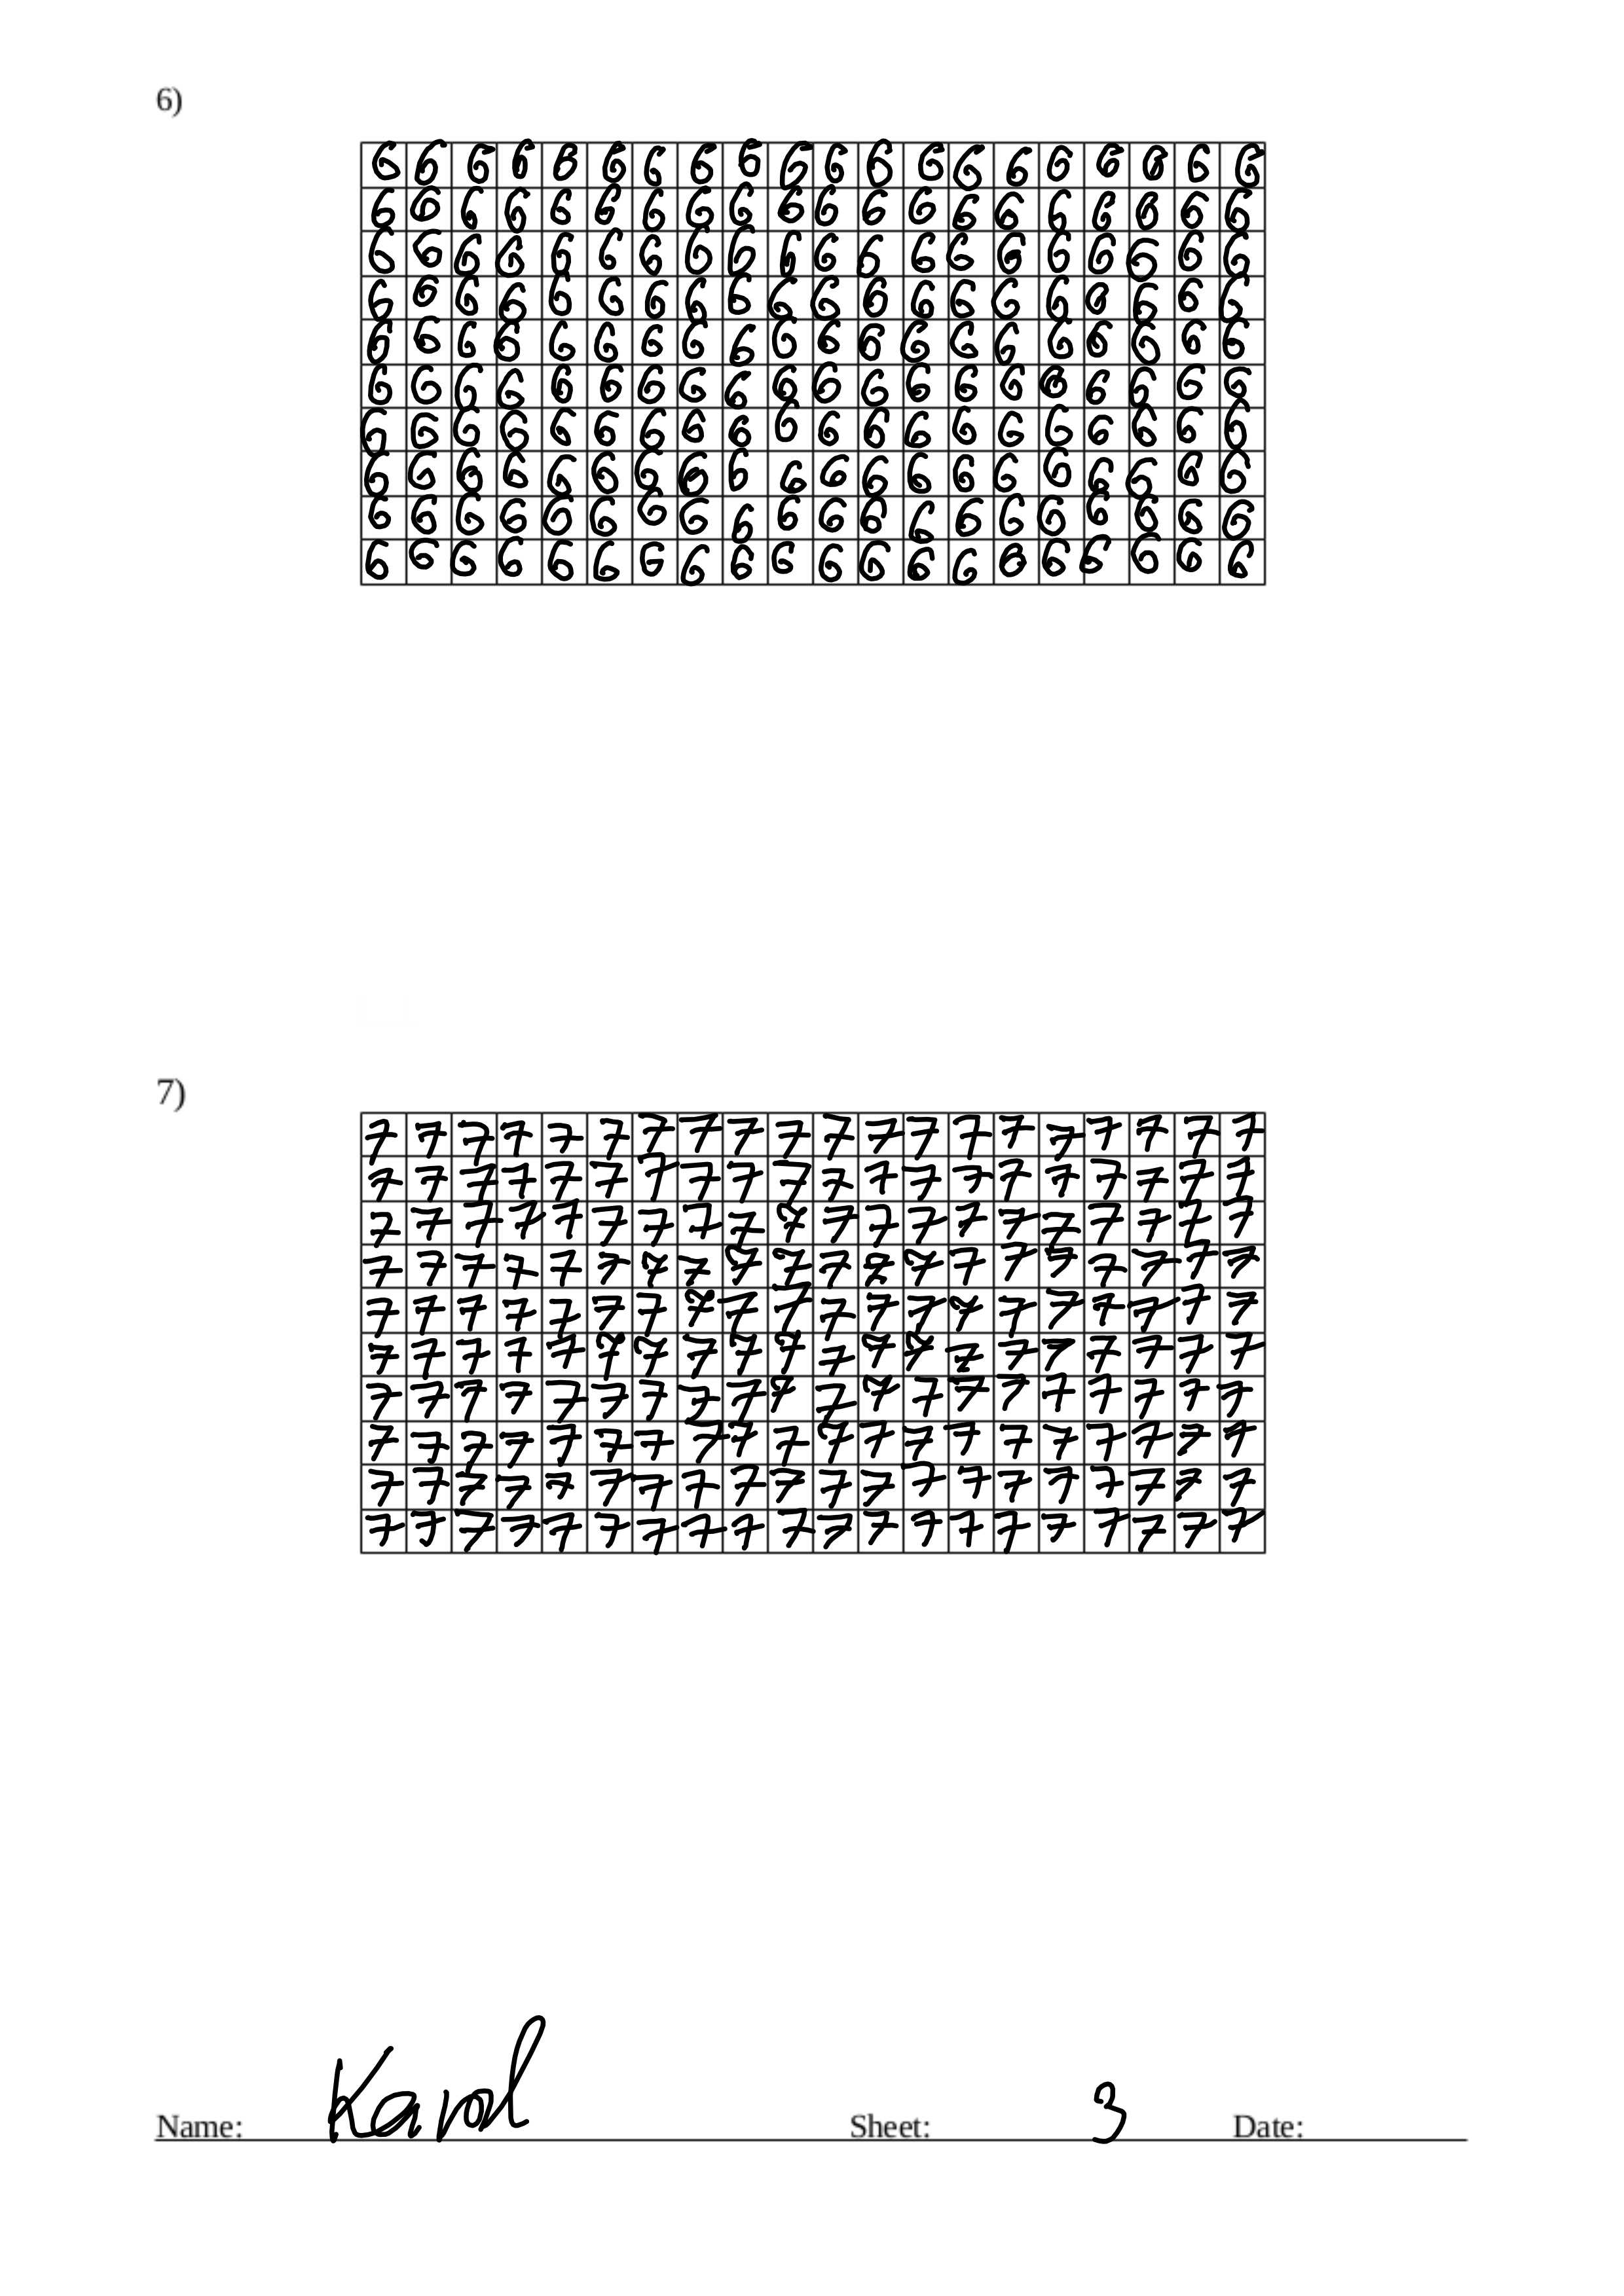 6)
6 6 6 6 6 6 6 6 6 6 6 6 6 6 6 6 6 6 6 6
6 6 6 6 6 6 6 6 6 6 6 6 6 6 6 6 6 6 6 6
6 6 6 6 6 6 6 6 6 6 6 6 6 6 6 6 6 6 6 6
6 6 6 6 6 6 6 6 6 6 6 6 6 6 6 6 6 6 6 6
6 6 6 6 6 6 6 6 6 6 6 6 6 6 6 6 6 6 6 6
6 6 6 6 6 6 6 6 6 6 6 6 6 6 6 6 6 6 6 6
6 6 6 6 6 6 6 6 6 6 6 6 6 6 6 6 6 6 6 6
6 6 6 6 6 6 6 6 6 6 6 6 6 6 6 6 6 6 6 6
6 6 6 6 6 6 6 6 6 6 6 6 6 6 6 6 6 6 6 6
6 6 6 6 6 6 6 6 6 6 6 6 6 6 6 6 6 6 6 6
7)
7 7 7 7 7 7 7 7 7 7 7 7 7 7 7 7 7 7 7 7
7 7 7 7 7 7 7 7 7 7 7 7 7 7 7 7 7 7 7 7
7 7 7 7 7 7 7 7 7 7 7 7 7 7 7 7 7 7 7 7
7 7 7 7 7 7 7 7 7 7 7 7 7 7 7 7 7 7 7 7
7 7 7 7 7 7 7 7 7 7 7 7 7 7 7 7 7 7 7 7
7 7 7 7 7 7 7 7 7 7 7 7 7 7 7 7 7 7 7 7
7 7 7 7 7 7 7 7 7 7 7 7 7 7 7 7 7 7 7 7
7 7 7 7 7 7 7 7 7 7 7 7 7 7 7 7 7 7 7 7
7 7 7 7 7 7 7 7 7 7 7 7 7 7 7 7 7 7 7 7
7 7 7 7 7 7 7 7 7 7 7 7 7 7 7 7 7 7 7 7
Name: Karol Sheet: 3 Date: